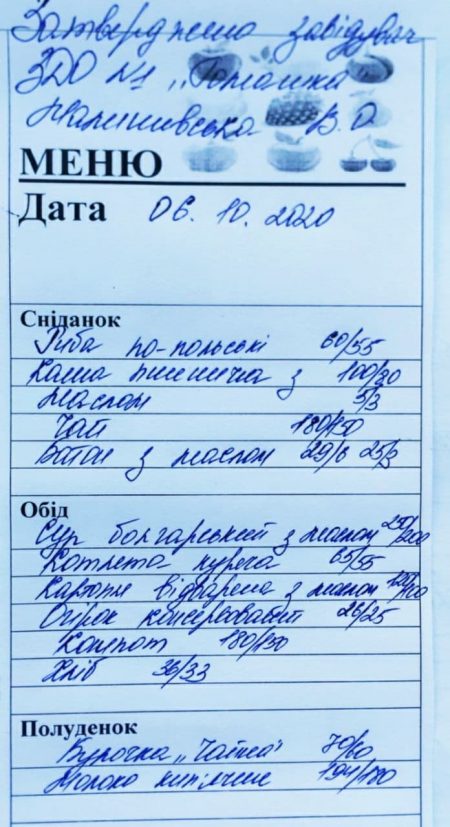 Затверджено завідувач
ЗДО №1 „Ромашка"
В. О.
МЕНЮ
Дата 06. 10. 2020
Сніданок
Риба по-польські 60/55
Каша пшенична з 100/30
маслом 5/3
Чай 180/150
Батон з маслом 29/6 25/3
Обід
Суп болгарський з маслом 250/200
Котлета куряча 65/55
Картопля відварена з маслом 120/100
Огірок консервований 26/25
Компот 180/150
Хліб 36/33
Полуденок
Булочка „Чайна" 70/60
Молоко кип'ячене 194/180